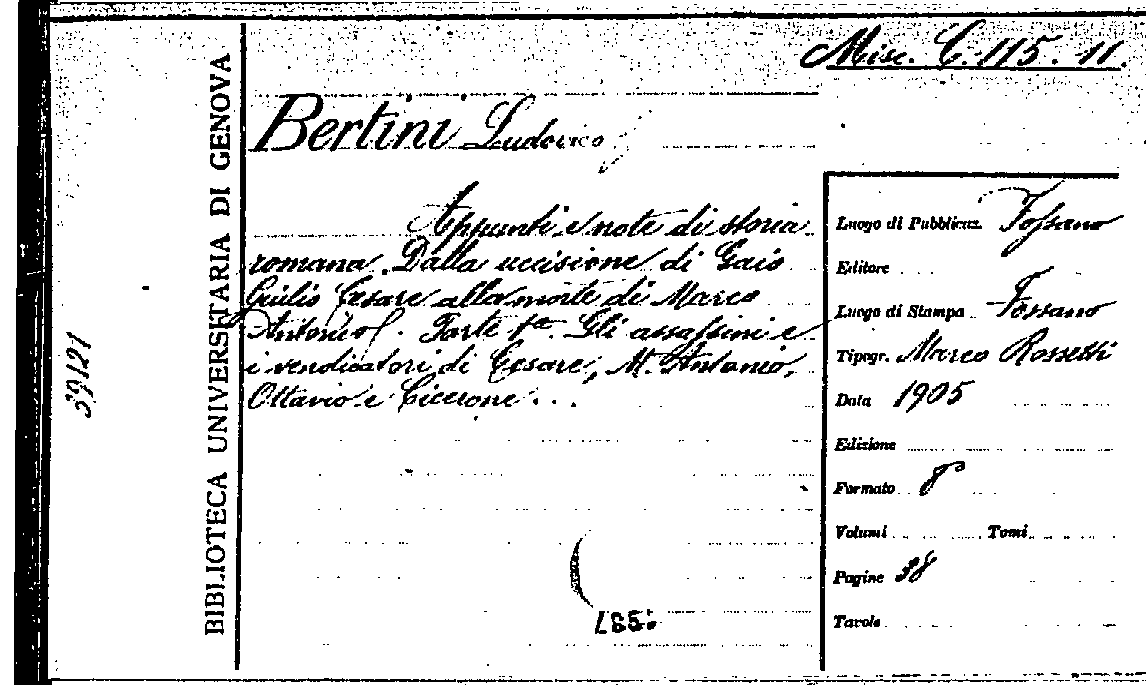 Misc. C. 115. 11.
Bertini Ludovico
Appunti e note di storia
romana. Dalla uccisione di Gaio
Giulio Cesare alla morte di Marco
Antonio. Parte 1ª Gli assassini e
i vendicatori di Cesare, M. Antonio,
Ottavio e Cicerone...
Luogo di Pubblicaz. Fossano
Editore
Luogo di Stampa Fossano
Tipogr. Marco Rossetti
Data 1905
Edizione
Formato 8°
Volumi Tomi
Pagine 38
Tavole
BIBLIOTECA UNIVERSITARIA DI GENOVA
39121